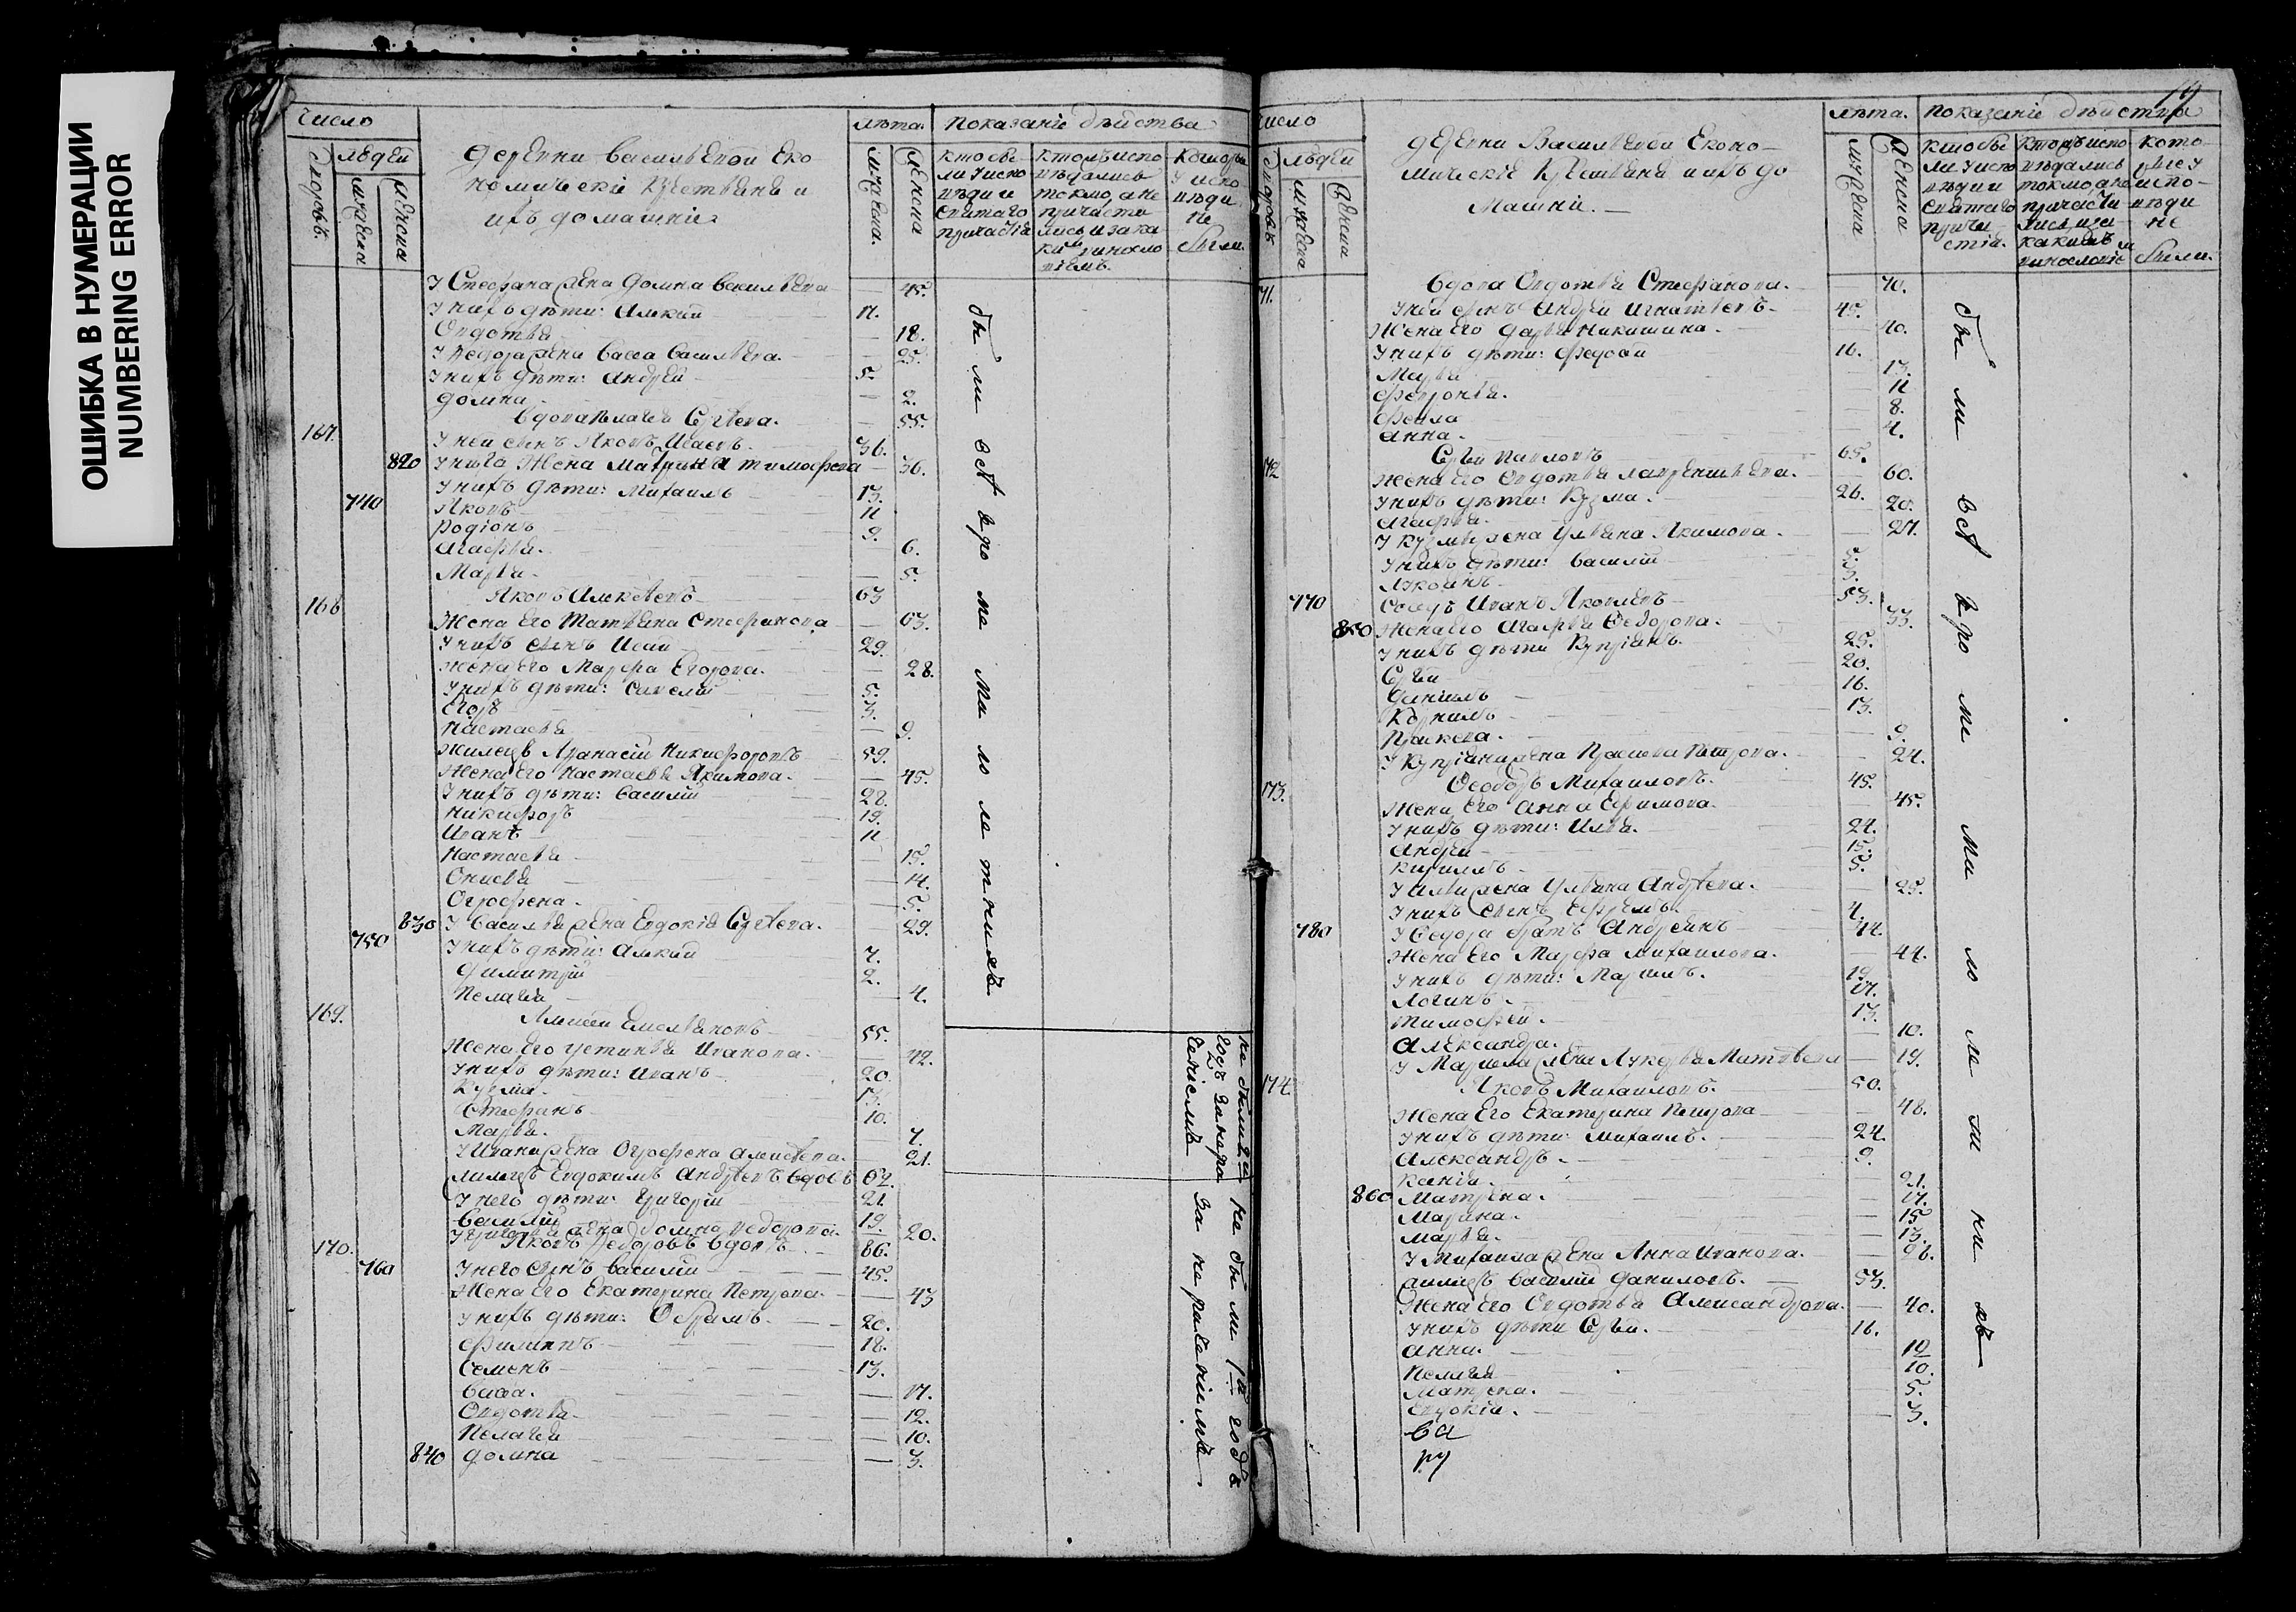 ОШИБКА В НУМЕРАЦИИ
NUMBERING ERROR
число
людей
дворовъ.
мужеска
женска
деревни васильевой Еко
номическiе крестьяне и
ихъ домашнiе
лѣта.
мужеска.
женска
показанiе дѣйства
кто бы
ли у испо
вѣди и
святаго
причастiя
кто исповѣдались
токмо, а не
причасти
лись и за ка
кимъ винosло
вiемъ.
которые
у испо
вѣди
не
были.
У Стефана жена Домна васильева — 45.
У нихъ дѣти: Алексiй 11.
Овдотья — 18.
У Федора жена Васса васильева. — 25.
У нихъ дѣти: Андрей 5.
Домна — 2.
167. Вдова Пелагея Сергѣева. — 55.
У ней сынъ Яковъ Исаевъ. 36.
820 У него жена Матрина тимофеева — 36.
У нихъ дѣти: Михаилъ 13.
740 Яковъ 11
Родiонъ 9.
Агафья. — 6.
Марья. — 5.
168 Яковъ Алексѣевъ 63
Жена его Татьяна Стефанова — 63.
У нихъ сынъ Исай 29.
жена его Марфа Егорова. — 28.
У нихъ дѣти: Савелiй 5.
Егоръ 3.
Настасья — 9.
Жилецъ Афанасiй Никифоровъ 59.
Жена его Настасья Якимова. — 45.
У нихъ дѣти: Василiй 28.
Никифоръ 19.
Иванъ 11
Настасья — 15.
Онисья — 14.
Огрофена. — 5.
830 У Василья жена Евдокiя Сергѣева. — 29.
750 У нихъ дѣти: Алексiй 7.
Димитрiй 2.
Пелагея — 4.
169. Алексей Емельяновъ 55.
Жена его Устинья Иванова. — 42.
У нихъ дѣти: Иванъ 20.
Кузма. 13.
Стефанъ 10.
Марья. — 7.
У Ивана жена Огрофена Алексѣева. — 21.
жилецъ Евдокимъ Андрѣевъ вдовъ 62.
У него дѣти: Григорiй 21.
Василiй 19.
У Григорiя жена Домна Федорова. — 20.
170. Яковъ Федоровъ вдовъ 86.
760 У него сынъ Василiй 45.
Жена его Екатерина Петрова. — 43
У нихъ дѣти: Обрамъ. 20.
Филиппъ 18.
Семенъ 13.
Васса. — 17.
Овдотья. — 12.
Пелагея — 10.
840 Домна — 3.
были всѣ кроме малолетнихъ
не были 2й годъ за нерачениемъ
не были 1й годъ за нерачениемъ
19
число
людей
дворовъ
мужеска
женска
деревни Васильевой Еконо-
мическiе крестьяне и ихъ до
машнiе. —
лѣта.
мужеска
женска
показанiе дѣйства
кто бы
ли у испо
вѣди и
святаго
прича
стiя.
кто исповѣдались
токмо, а не
причасти
лись и за
какимъ
винословiе
кото
рые у
испо-
вѣди
не
были.
71. Вдова Овдотья Стефанова. — 70.
У ней сынъ Андрей Игнатьевъ. 45.
Жена его Дарья Никитина. — 40.
У нихъ дѣти: Федосей 16.
Марья — 13.
Февронья. — 11
Фекла — 8.
Анна. — 4.
172 Сергѣй Павловъ 65.
жена его Овдотья Лаврентьева. — 60.
У нихъ дѣти: Кузма. 26.
Агафья. — 20.
У Кузмы жена Ульяна Якимова. — 27.
У нихъ дѣти: Василiй 5.
Лукоянъ 3.
770 Соседъ Иванъ Яковлевъ 53.
850 Жена его Агафья Федорова. — 53.
У нихъ дѣти Купрiянъ. 25.
Сергѣй 20.
Данiилъ 16.
Корнилъ 13.
Прасковья. — 9.
У Купрiяна жена Прасковья Петрова. — 24.
173. Феодоръ Михаиловъ. 45.
Жена его Анна Ефимова. — 45.
У нихъ дѣти: Илья. 24.
Андрей 15.
Кириллъ 5.
У Ильи жена Ульяна Андрѣева. — 25.
У нихъ сынъ Ефремъ. 4.
780 У Федора братъ Андреянъ 44.
Жена его Марфа Михаилова. — 44.
У нихъ дѣти: Маркелъ. 19.
Логинъ. 17.
Тимофей. 13.
Александра. — 10.
У Маркела жена Лукерья Матвѣева — 19.
174. Яковъ Михаиловъ. 50.
Жена его Екатерина Петрова — 48.
У нихъ дѣти: Михаилъ. 24.
Александръ. 9.
Ксенiя. — 21.
860 Матрена. — 17.
Марина. — 15
Марья. — 13.
У Михаила жена Анна Иванова. — 26.
жилецъ Василiй Даниловъ. 53.
Жена его Овдотья Александрова. — 40.
У нихъ дѣти Сергѣй. 16.
Анна. — 12
Пелагея — 10.
Матрена. — 5.
Евдокiя. — 3.
были всѣ кроме малолетнихъ
ва
ру